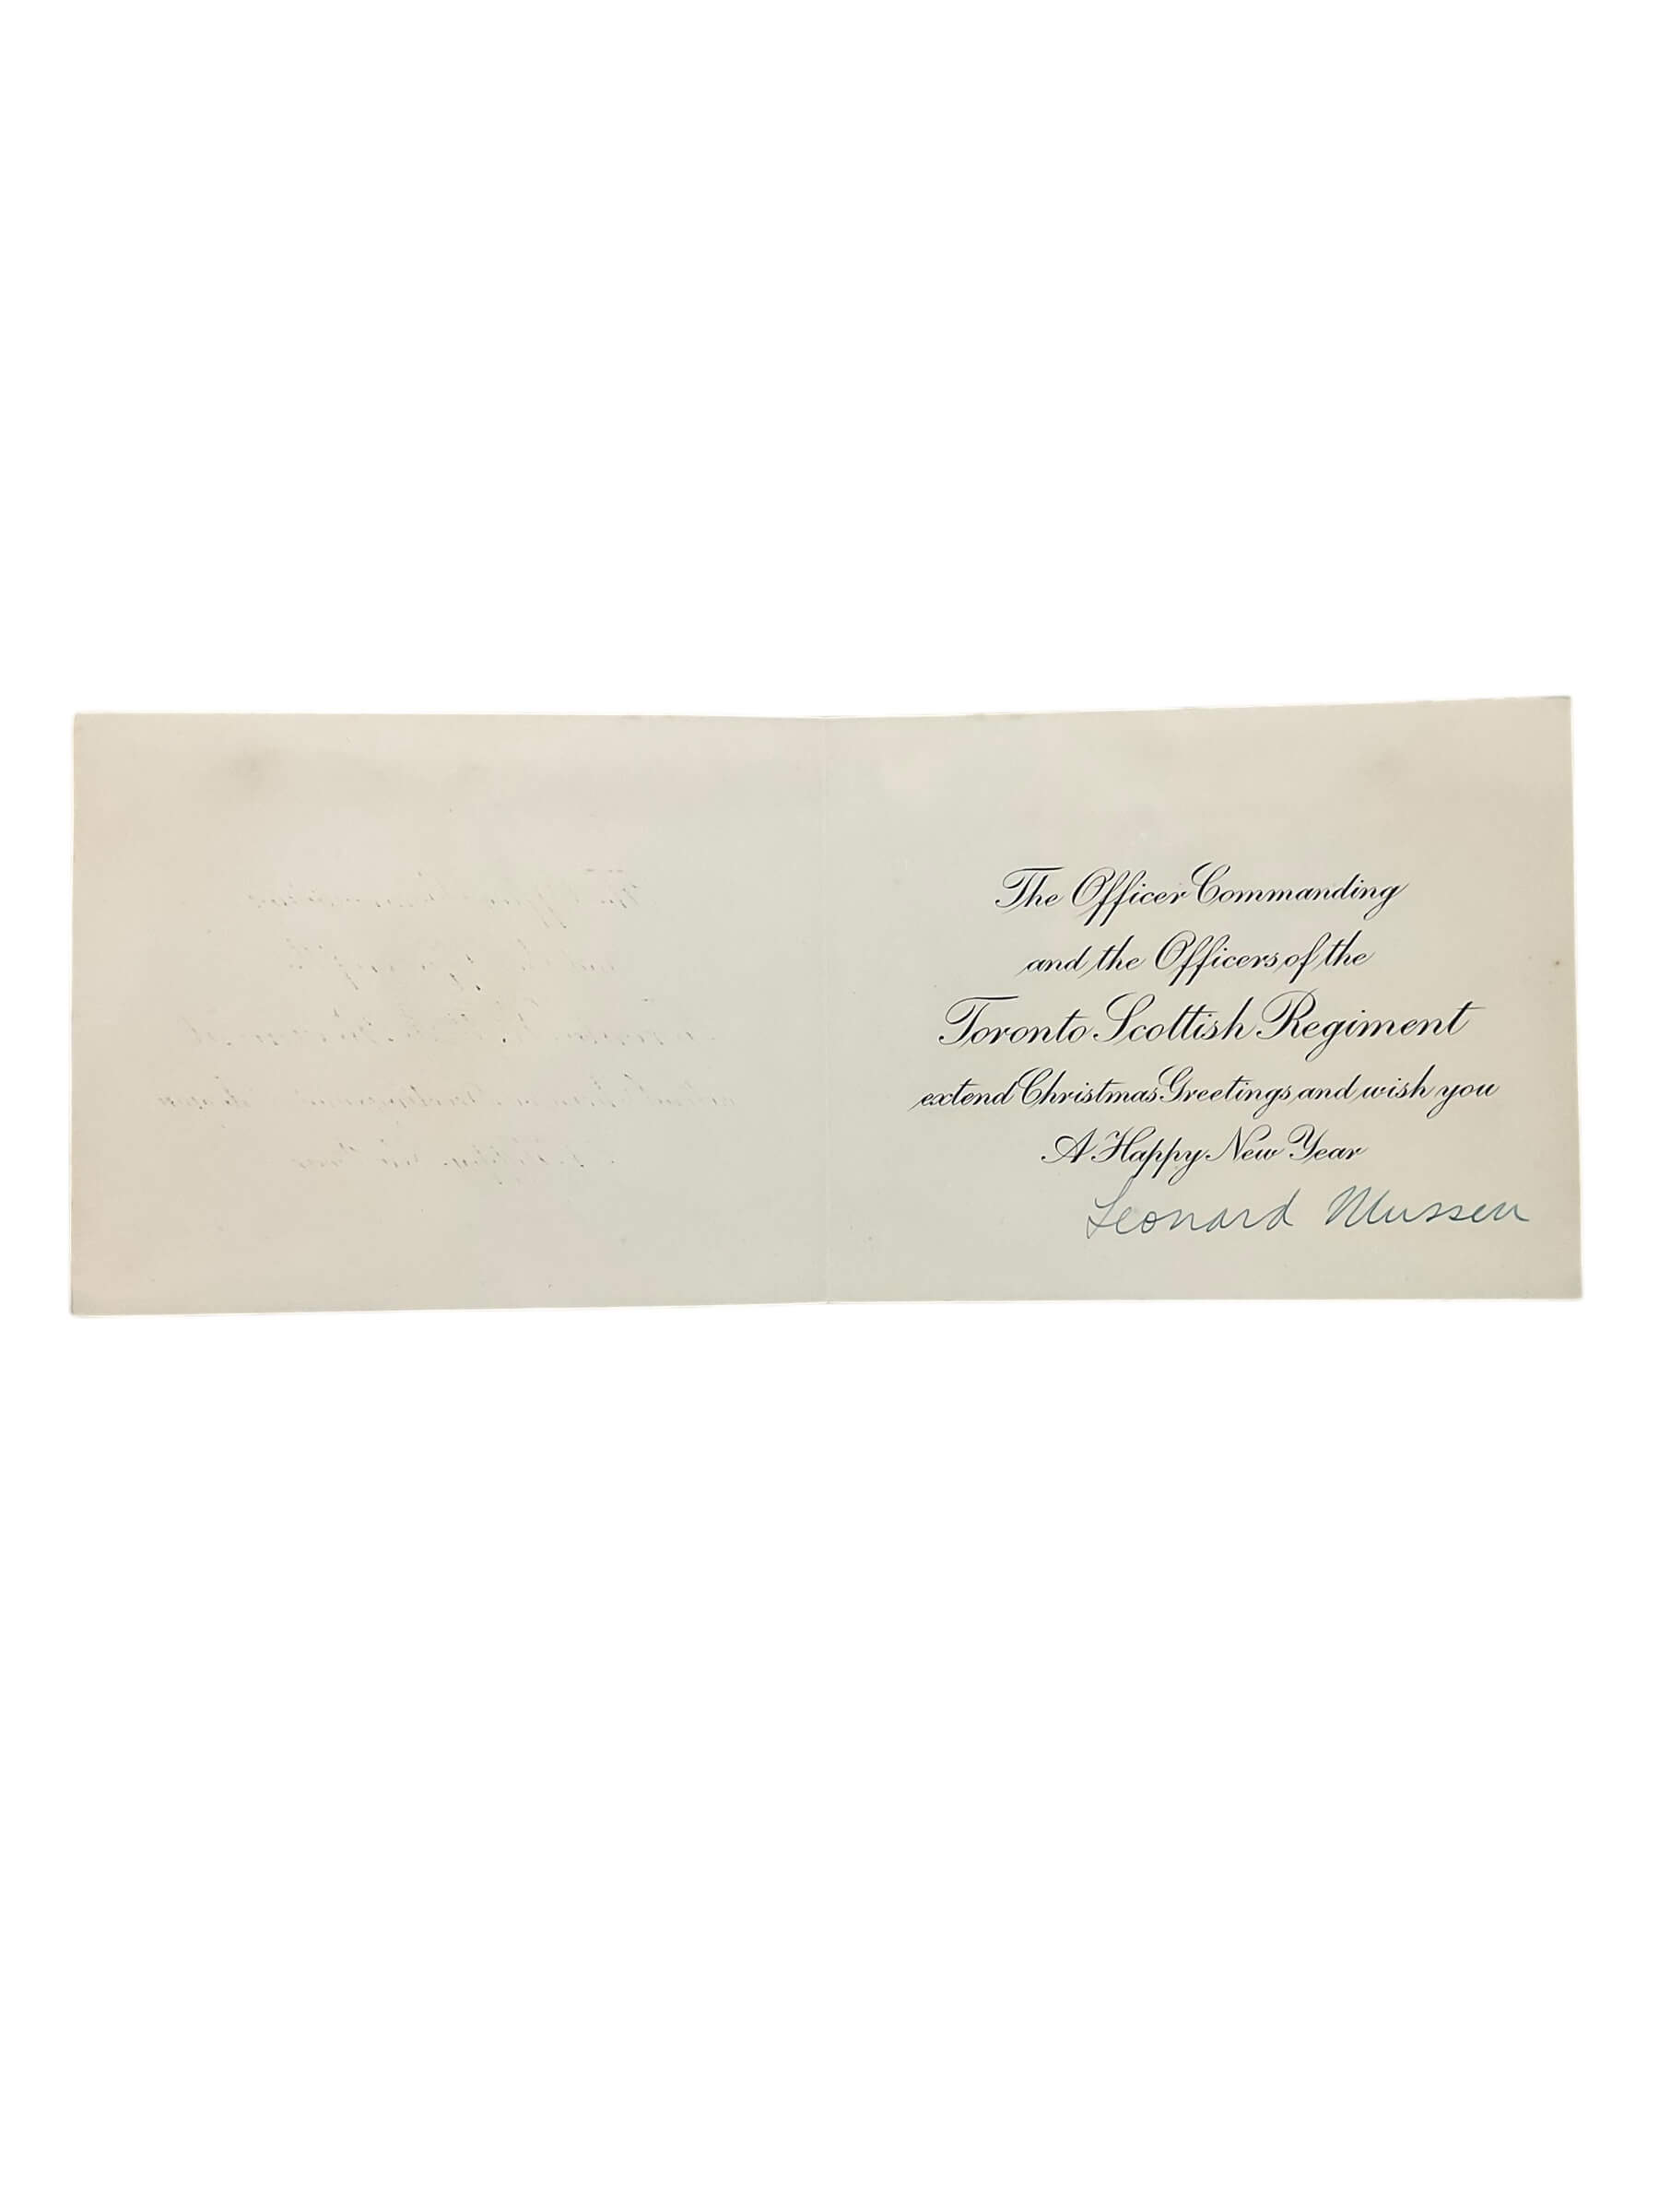 The Officer Commanding
and the Officers of the
Toronto Scottish Regiment
extend Christmas Greetings and wish you
A Happy New Year
Leonard Mussen